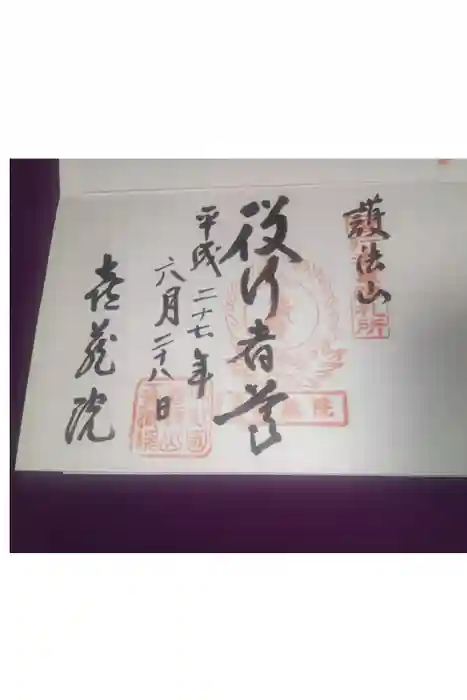 護法山
札所
役行者尊
平成二十七年
六月二十八日
喜蔵院